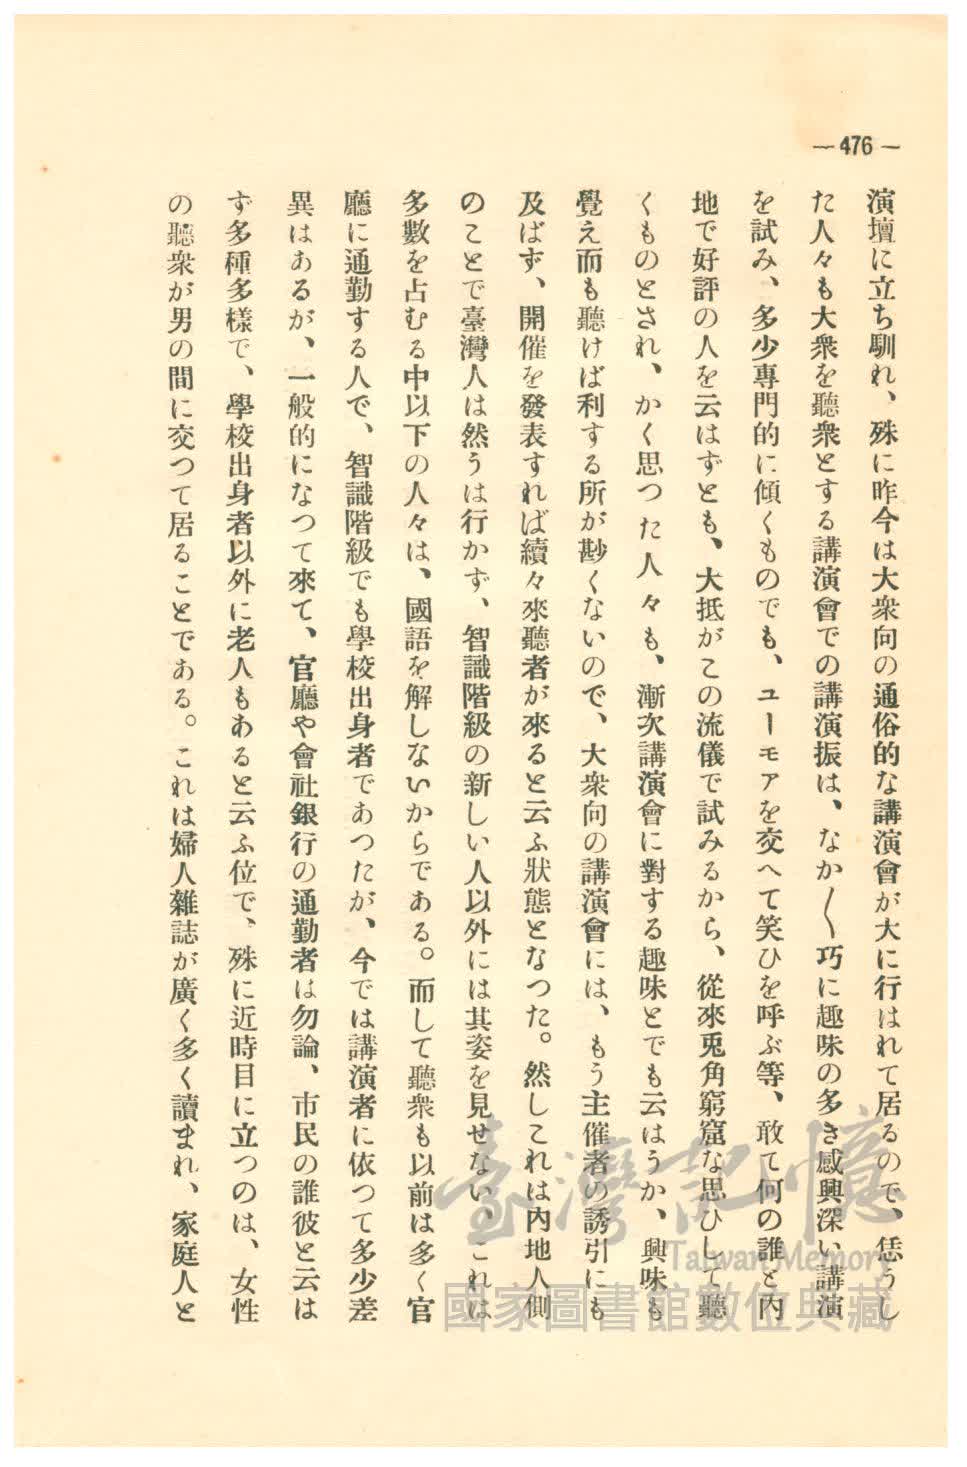 — 476 —
演壇に立ち馴れ、殊に昨今は大衆向の通俗的な講演會が大に行はれて居るので、恁うし
た人々も大衆を聽衆とする講演會での講演振は、なか〱巧に趣味の多き感興深い講演
を試み、多少專門的に傾くものでも、ユーモアを交へて笑ひを呼ぶ等、敢て何の誰と内
地で好評の人を云はずとも、大抵がこの流儀で試みるから、從來兎角窮窟な思ひして聽
くものとされ、かく思つた人々も、漸次講演會に對する趣味とでも云はうか、興味も
覺え而も聽けば利する所が尠くないので、大衆向の講演會には、もう主催者の誘引にも
及ばず、開催を發表すれば續々來聽者が來ると云ふ狀態となつた。然しこれは内地人側
のことで臺灣人は然うは行かず、智識階級の新しい人以外には其姿を見せない、これは
多數を占むる中以下の人々は、國語を解しないからである。而して聽衆も以前は多く官
廳に通勤する人で、智識階級でも學校出身者であつたが、今では講演者に依つて多少差
異はあるが、一般的になつて來て、官廳や會社銀行の通勤者は勿論、市民の誰彼と云は
ず多種多樣で、學校出身者以外に老人もあると云ふ位で、殊に近時目に立つのは、女性
の聽衆が男の間に交つて居ることである。これは婦人雜誌が廣く多く讀まれ、家庭人と
臺灣記憶
Taiwan Memory
國家圖書館數位典藏